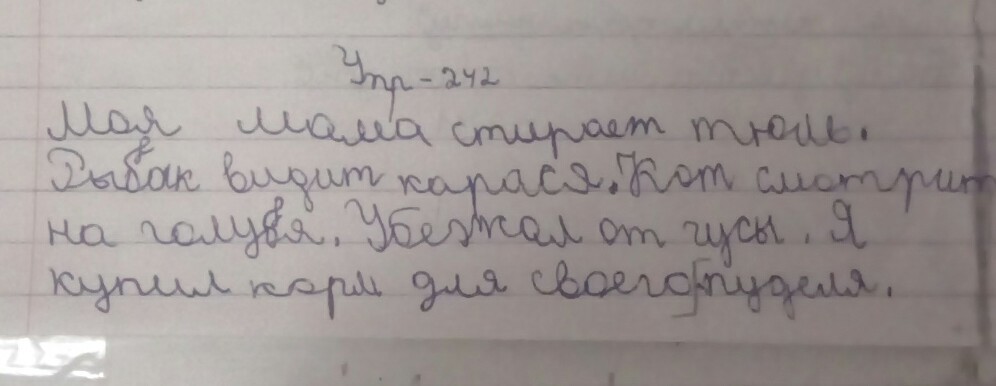 Упр-242
Моя мама стирает тюль.
Рыбак видит карася. Кот смотрит
на голубя. Убежал от гусы. Я
купил корм для своего пуделя.